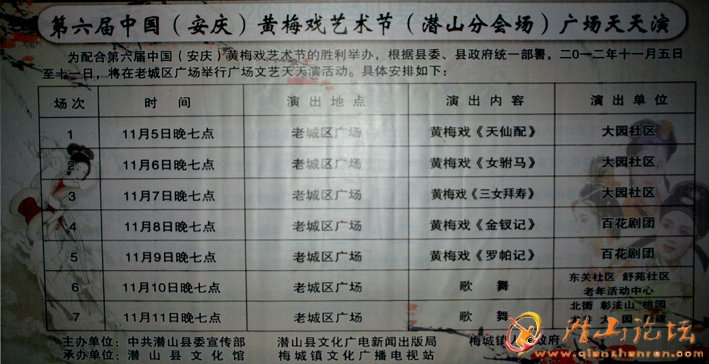 第六届中国（安庆）黄梅戏艺术节（潜山分会场）广场天天演
为配合第六届中国（安庆）黄梅戏艺术节的胜利举办，根据县委、县政府统一部署，二〇一二年十一月五日
至十一日，将在老城区广场举行广场文艺天天演活动。具体安排如下：
场次 时间 演出地点 演出内容 演出单位
1 11月5日晚七点 老城区广场 黄梅戏《天仙配》 大园社区
2 11月6日晚七点 老城区广场 黄梅戏《女驸马》 大园社区
3 11月7日晚七点 老城区广场 黄梅戏《三女拜寿》 大园社区
4 11月8日晚七点 老城区广场 黄梅戏《金钗记》 百花剧团
5 11月9日晚七点 老城区广场 黄梅戏《罗帕记》 百花剧团
6 11月10日晚七点 老城区广场 歌舞 东关社区 舒苑社区
老年活动中心
7 11月11日晚七点 老城区广场 歌舞 北街 彰法山 桃园
主办单位：中共潜山县委宣传部 潜山县文化广电新闻出版局 梅城镇人民政府
承办单位：潜山县文化馆 梅城镇文化广播电视站
潜山论坛
www.qianshanren.com